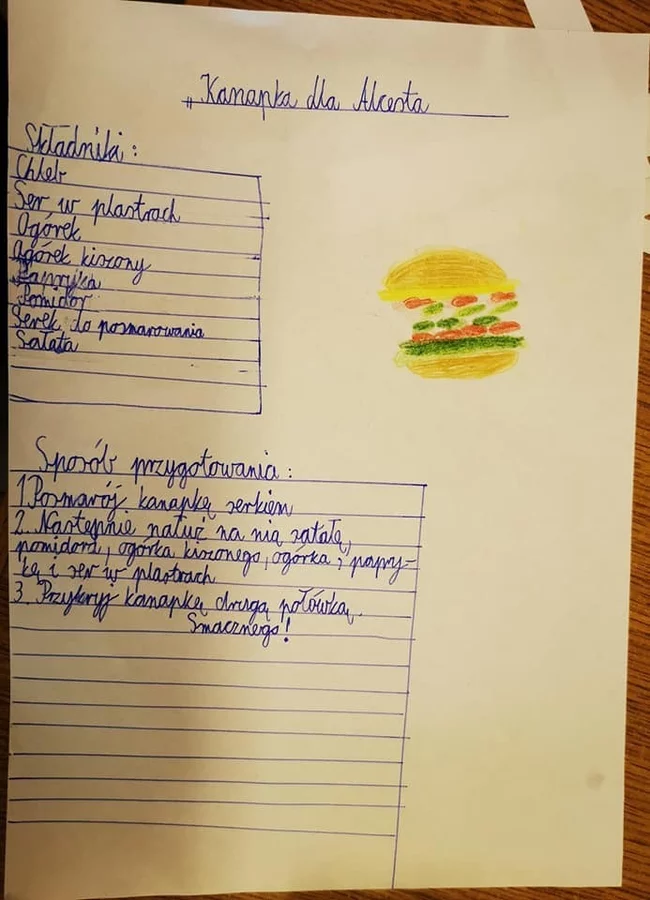 „Kanapka dla Alcesta
Składniki:
Chleb
Ser w plastrach
Ogórek
Ogórek kiszony
Papryka
Pomidor
Serek do posmarowania
Sałata
Sposób przygotowania:
1. Posmaruj kanapkę serkiem
2. Następnie nałuż na nią sałatę,
pomidora, ogórka kiszonego, ogórka, papry-
kę i ser w plastrach
3. Przykryj kanapkę drugą połówką.
Smacznego!